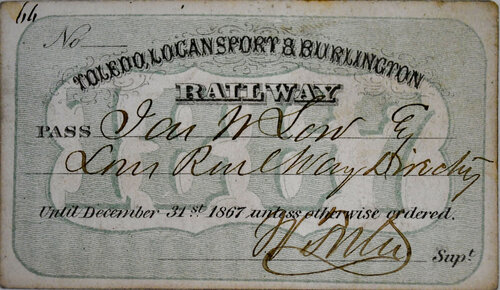 64
No
TOLEDO, LOGANSPORT & BURLINGTON
RAILWAY
PASS Jas W Low Esq
Rail Way Directory
Until December 31st. 1867 unless otherwise ordered.
Supt.